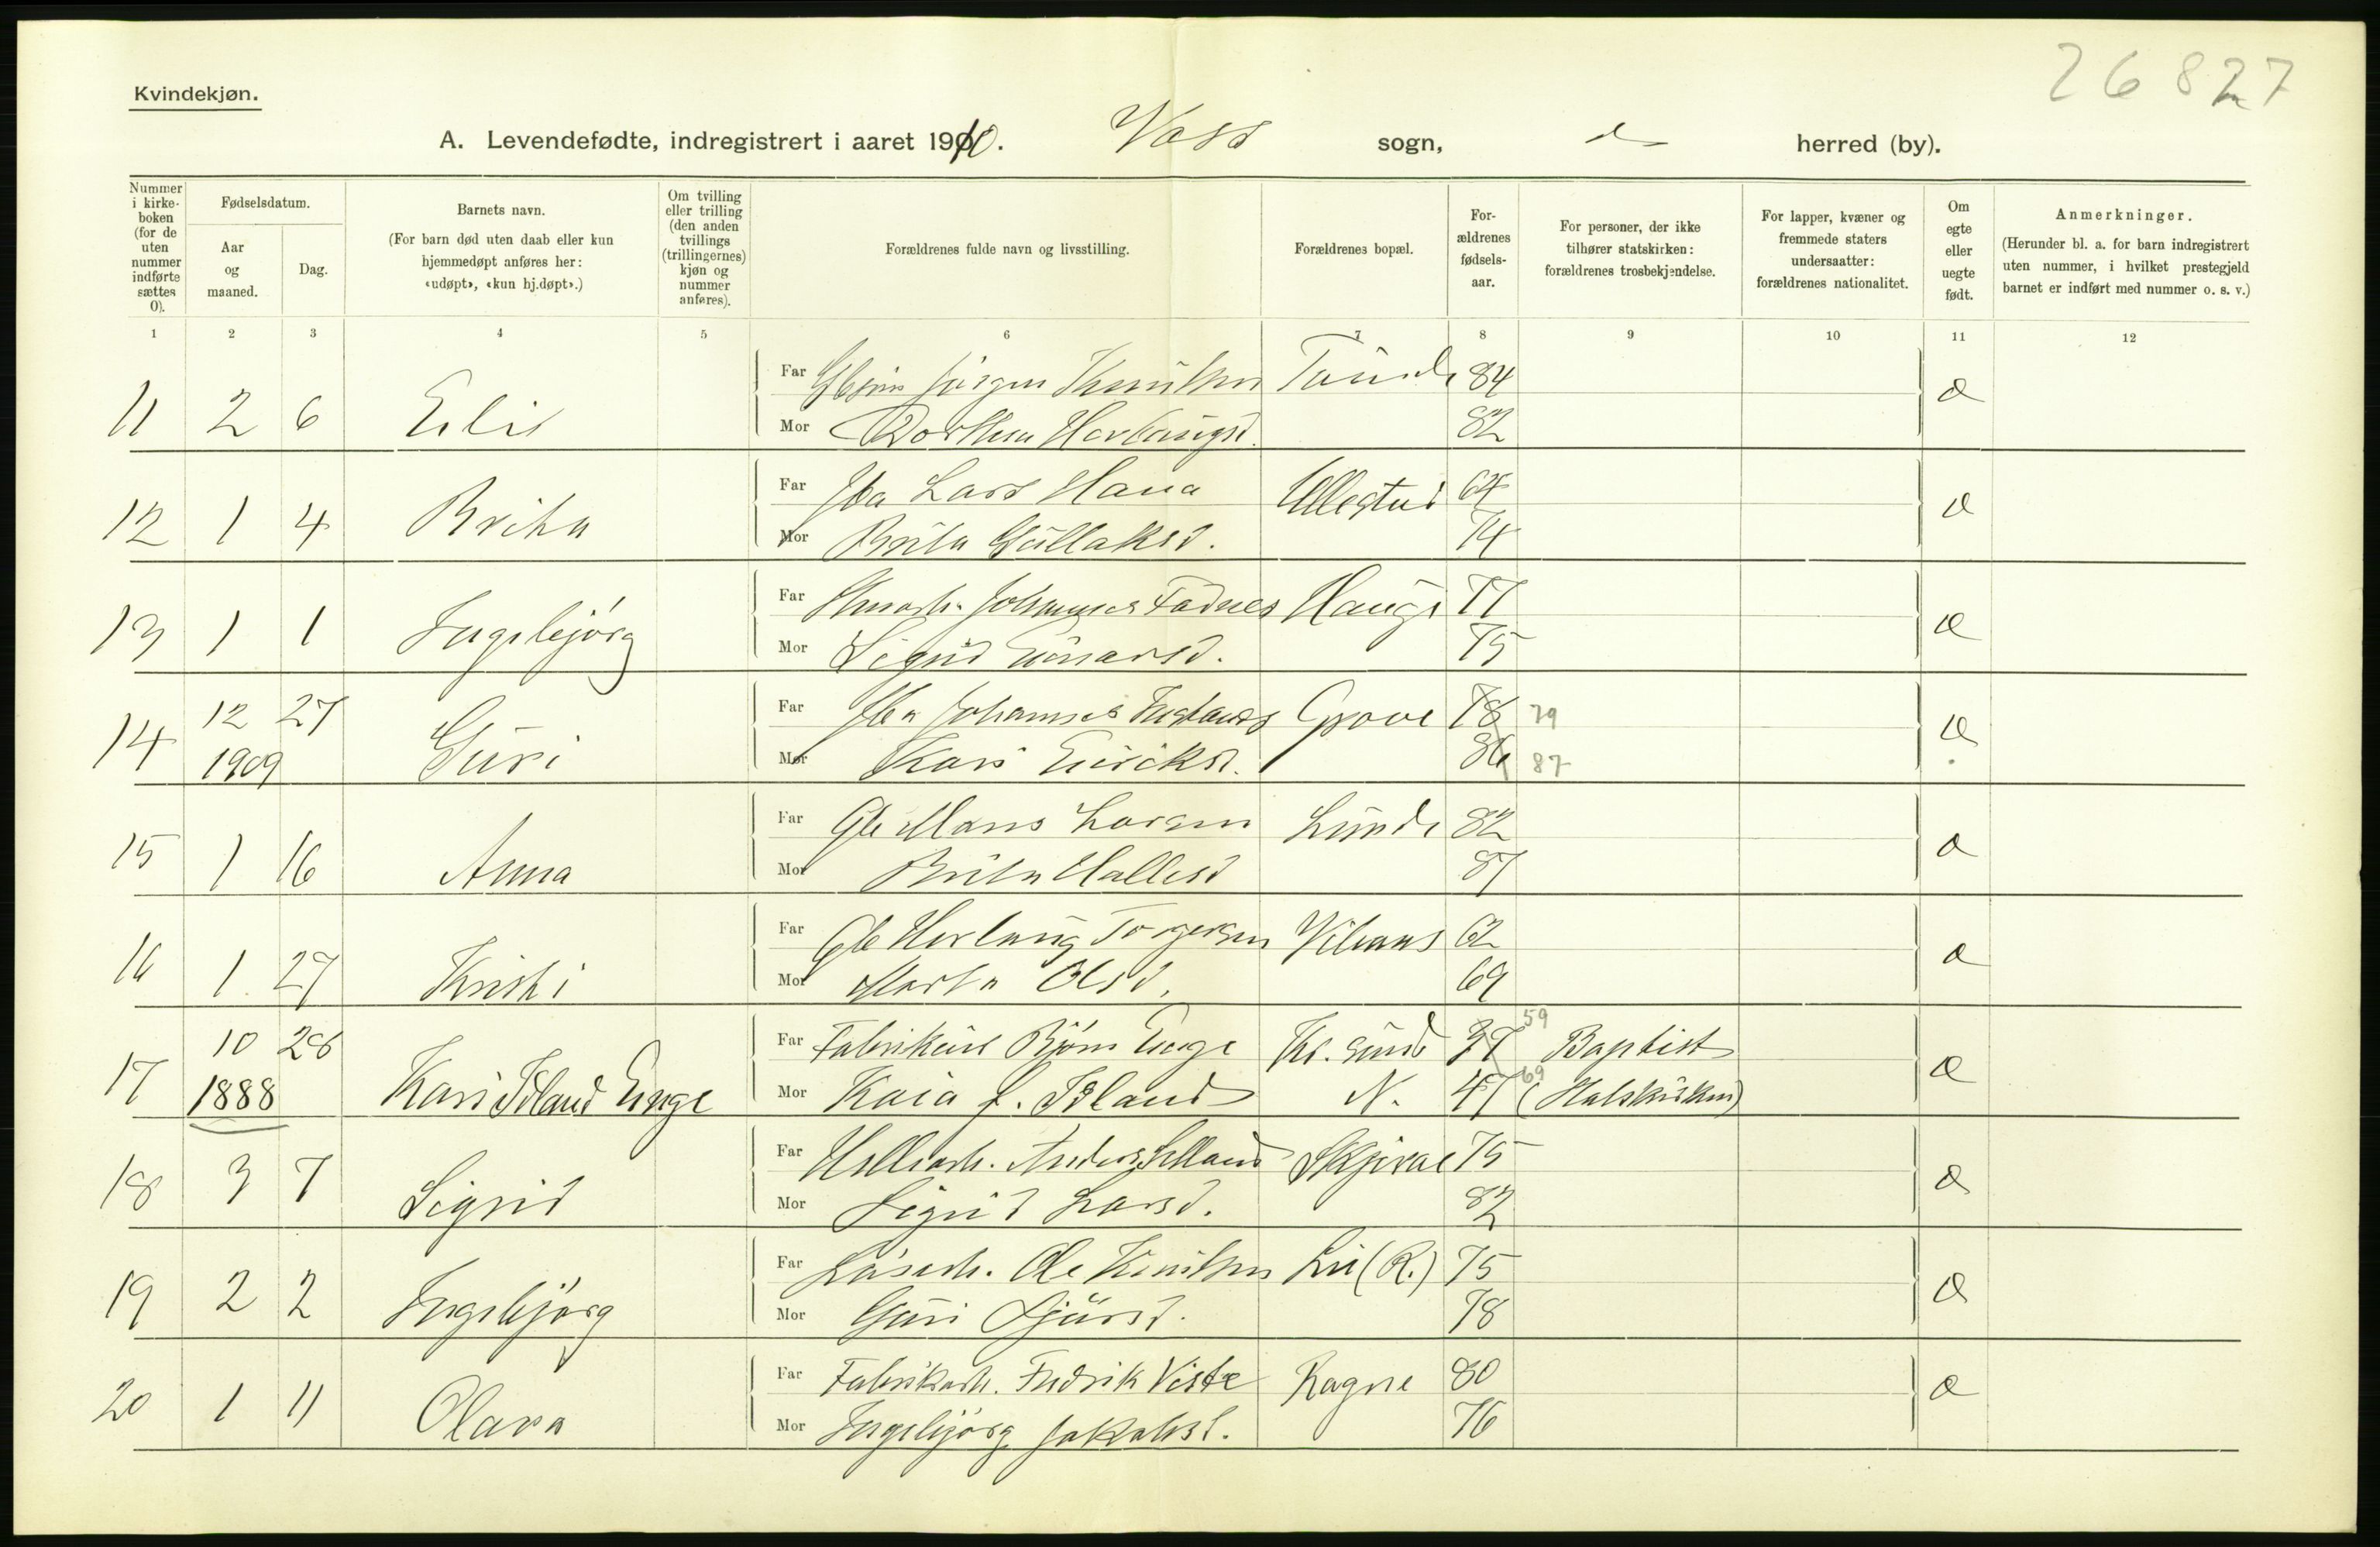 26827
Kvindekjøn.
A. Levendefødte, indregistrert i aaret 1910. Voss sogn, herred (by).
Nummer i kirke-boken (for de uten nummer indførte sættes 0).
Fødselsdatum.
Aar og maaned.
Dag.
Barnets navn.
(For barn død uten daab eller kun hjemmedøpt anføres her: «udøpt», «kun hj.døpt».)
Om tvilling eller trilling (den anden tvillings (trillingernes) kjøn og nummer anføres).
Forældrenes fulde navn og livsstilling.
Forældrenes bopæl.
For-ældrenes fødsels-aar.
For personer, der ikke tilhører statskirken: forældrenes trosbekjendelse.
For lapper, kvæner og fremmede staters undersaatter: forældrenes nationalitet.
Om egte eller uegte født.
Anmerkninger.
(Herunder bl. a. for barn indregistrert uten nummer, i hvilket prestegjeld barnet er indført med nummer o. s. v.)
1 2 3 4 5 6 7 8 9 10 11 12
Far Jörgen Knutsen 84
11 2 6 Eli Mor Dorthea Herlaugsd. 82
Far Lars Hana Ullestad 64
12 1 4 Brita Mor Brita Gullaksd. 74
Far Johannes Fadnes Hauge 77
13 1 1 Ingebjörg Mor Sigrid Einarsd. 75
12 27 Far Johannes Grove 78 79
14 1909 Guri Mor Kari Eiriksd. 86 87
Far Gbr Mons Larsen Lunde 82
15 1 16 Anna Mor Brita Hallesd 87
Far Gbr Herlaug Torgersen 62
16 1 27 Kristi Mor Marta Olsd. 69
10 28 Far Björn Enge Kr. sund 37 59 Baptist
17 1888 Kari Island Enge Mor Kaia f. Island N. 47 69
Far Anders Selland Skjerve 75
18 3 7 Sigrid Mor Sigrid Larsd. 82
Far Lösarb. Ole Knutsen Lii (R.) 75
19 2 2 Ingebjörg Mor Guri Sjursd. 78
Far Fabrikarb. Fredrik Viste Ragne 80
20 1 11 Olava Mor Ingebjörg Jakobsd. 76